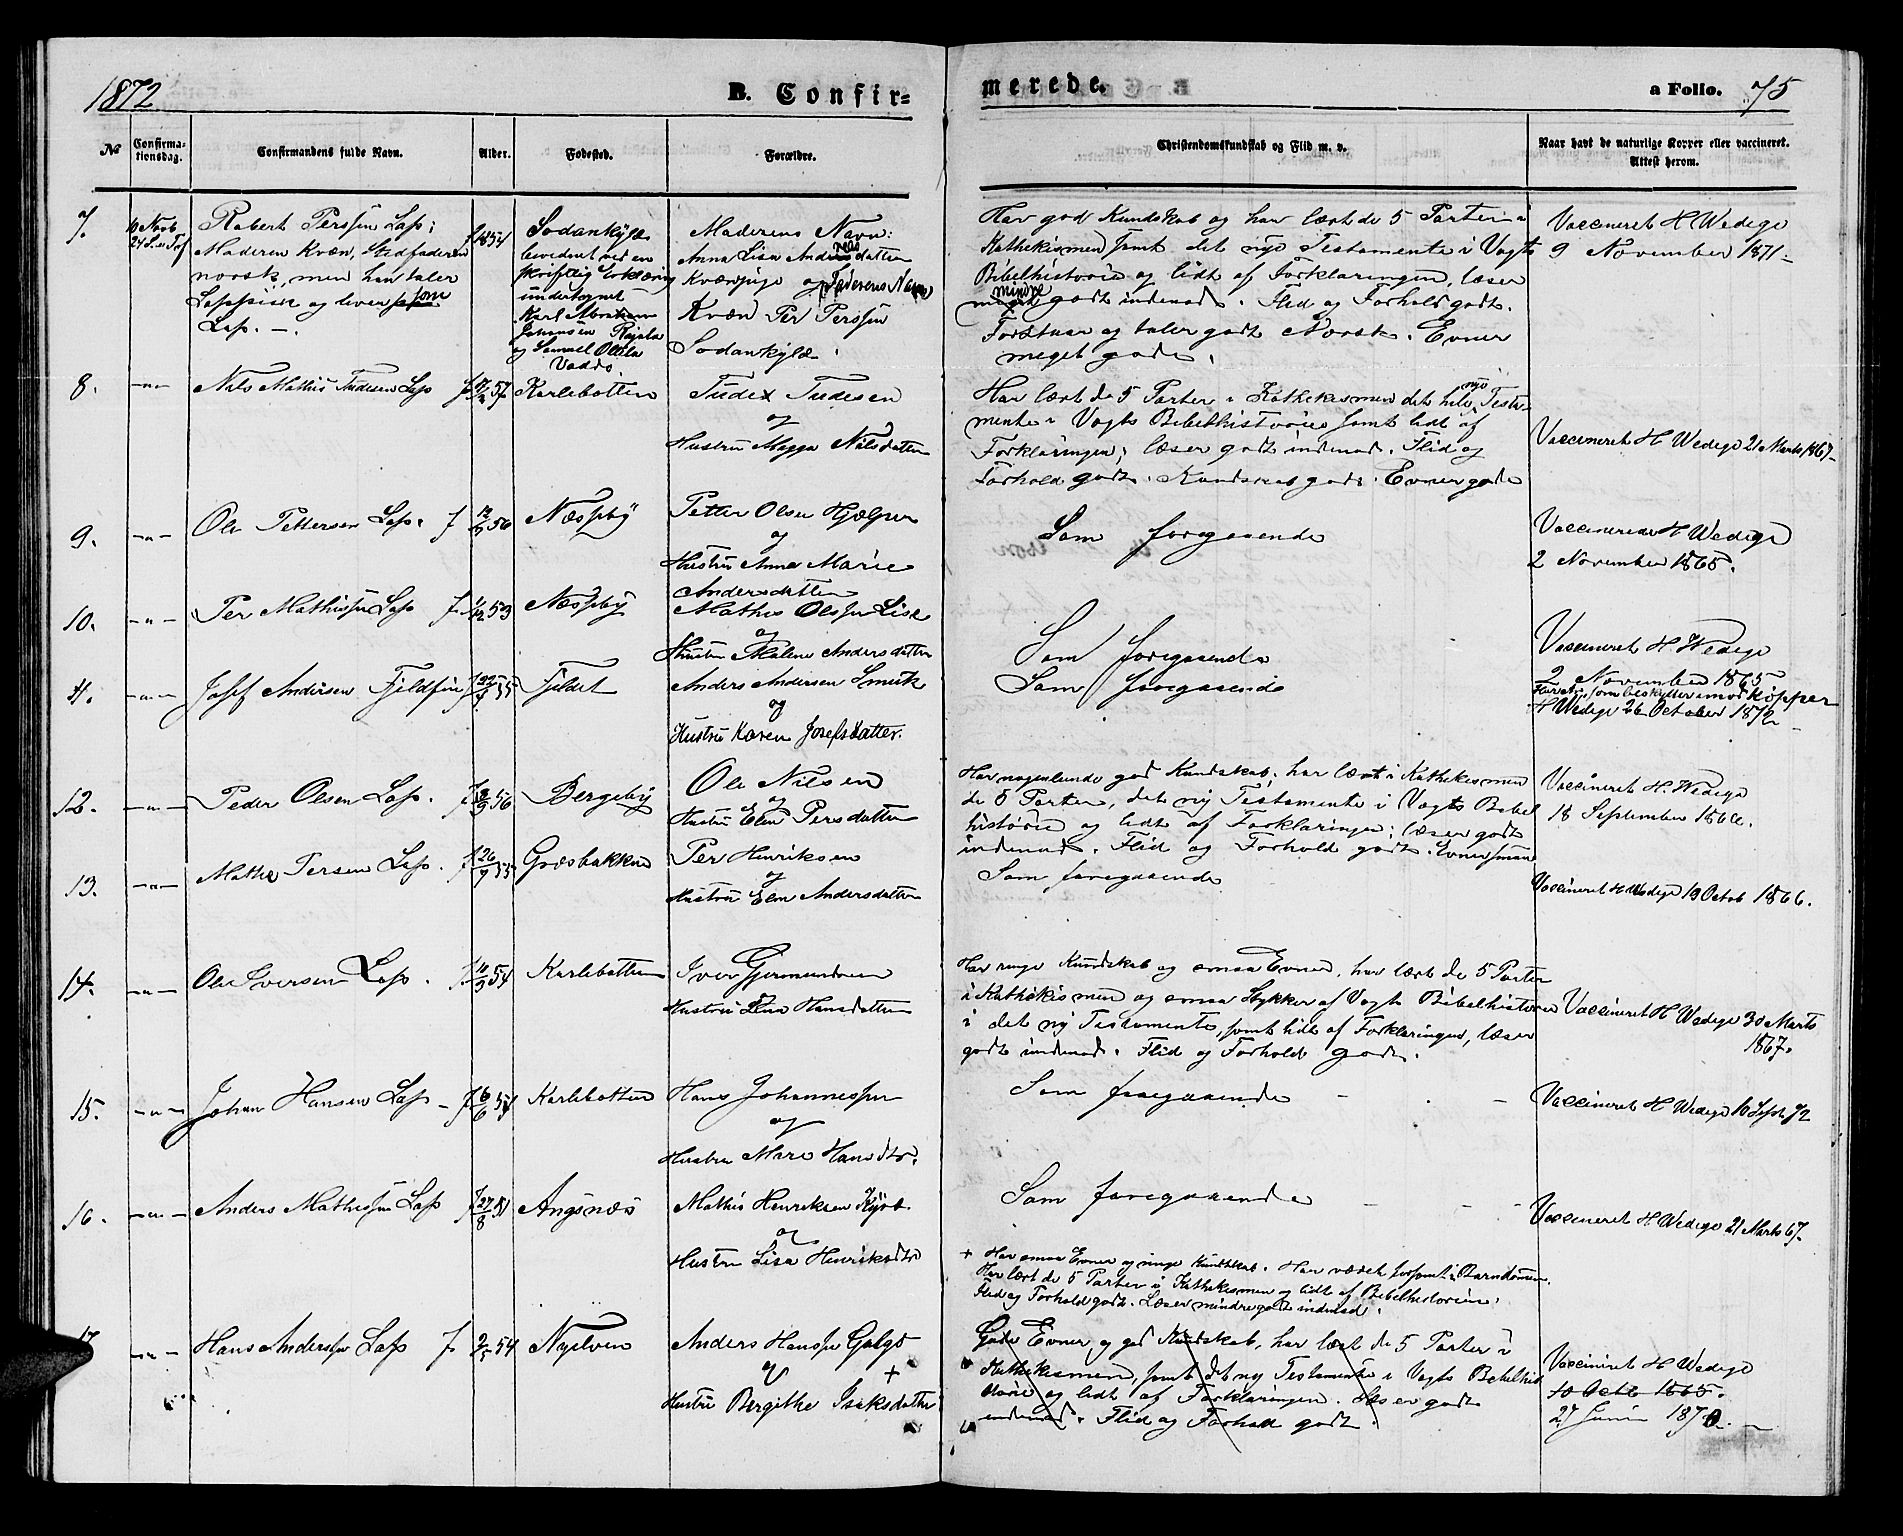 1872
B. Confir=
merede.
a Folio. 75
No
Confirma-
tionsdag.
Confirmandens fulde Navn.
Alder.
Fødested.
Forældre.
Christendomskundskab og Flid m. v.
Naar havt de naturlige Kopper eller vaccineret.
Attest herom.
7.
Robert Perssen Lap:
Moderen Kvæn, Stedfaderen
norsk, men han taler
Lappisk og lever som
Lap. -
f 1854
Sodankylæ
bevidnet ved en
skriftlig Erklæring
undertegnet
Karl Abraham
Johansen Rajala
og Samuel Ollila
Vadsø.
Moderens Navn:
Anna Lisa Andersdatten
og Faderens Navn
Kvæn Per Perssen
Sodankylæ.
Har god Kundskab og har lært de 5 Parter i
Kathekismen samt det nye Testamente i Vogts
Bibelhistorie og lidt af Forklaringen, læser
mindre godt indenad. Flid og Forhold godt.
Forstaar og taler godt Norsk. Evner
meget gode.
Vaccineret H Wedege
9 November 1871
8.
Nils Mathis Tudesen Lap
57
Karlebotten
Tude Tudesen
og
Hustru Magga Nilsdatten
Har lært de 5 Parter i Kathekismen det hele nye Testa-
mente i Vogts Bibelhistorie samt lidt af
Forklaringen; læser godt indenad. Flid og
Forhold godt. Kundskab god. Evner gode
Vaccineret H Wedege 21 Marts 1867
9.
Ole Pettersen Lap. f
56
Næsseby
Petter Olsen Hjelper
og
Hustru Anna Marie
Andersdatten
Som foregaaende
Vaccinerede H Wedege
2 November 1865.
10.
Per Mathissen Lap f
53
Næsseby
Mathis Olssen
og
Hustru Malene Andersdatten
Som foregaaende
Vaccineret H. Wedege
2 November 1865
11.
Josef Andersen Fjeldfin
55
Fjeldet
Anders Andersen Smuk
og
Hustru Karen Josefsdatter.
Som foregaaende
som beskytter imod Kopper
H Wedege 26 October 1872
12.
Peder Olsen Lap.
56
Bergeby
Ole Nilsen
og
Hustru Elen Persdatten
Har nogenlunde god Kundskab, har lært i Kathekismen
de 5 Parter, det ny Testamente i Vogts Bibel
historie og lidt af Forklaringen; læser godt
indenad. Flid og Forhold godt. Evner smaa
Vaccineret H. Wedege
18 September
13.
Mathis Persen Lap. f 26/9 55
Græsbakken
Per Henriksen
og
Hustru Elen Andersdatten
Som foregaaende
Vaccineret H Wedege 19 Octob 1866.
14.
Ole Iversen Lap.
54
Karlebotten
Iver Gjermundsen
Hustru Lena Hansdatten
Har ringe Kundskab og smaa Evner, har lært de 5 Parter
i Kathekismen og smaa Stykker af Vogts Bibelhistorie
i det ny Testamente, samt lidt af Forklaringen, læser
godt indenad. Flid og Forhold godt.
Vaccineret H Wedege 30 Marts
1867.
15.
Johan Hansen Lap - f 6/6 54
Karlebotten
Hans Johannessen
og
Hustru Mare Hansdtr.
Som foregaaende
Vaccineret H Wedege 16 Sept 72
16.
Anders Mathissen Lap f 27/8 51
Angsnæs
Mathis Henriksen
og
Hustru Lisa Henriksdtr
Som foregaaende
Vaccineret H Wedege 21 Marts 67.
+ Har smaa Evner og ringe Kundskab. Har været forsømt i Barndommen.
Har lært de 5 Parter i Kathekismen og lidt af Bibelhistorien.
Flid og Forhold godt. Læser mindre godt indenad.
17.
Hans Anderssen Lap f
54
Nyelven
Anders Hanssen Galgo
og +
Hustru Bergithe Isaksdatten
Gode Evner og god Kundskab, har lært de 5 Parter i
Kathekismen, samt det ny Testamente i Vogts Bibelhis
torie og lidt af Forklaringen. Læser godt
indenad. Flid og Forhold godt.
Vaccineret H Wedege
10 Octb 1865.
27 Juni 1870.